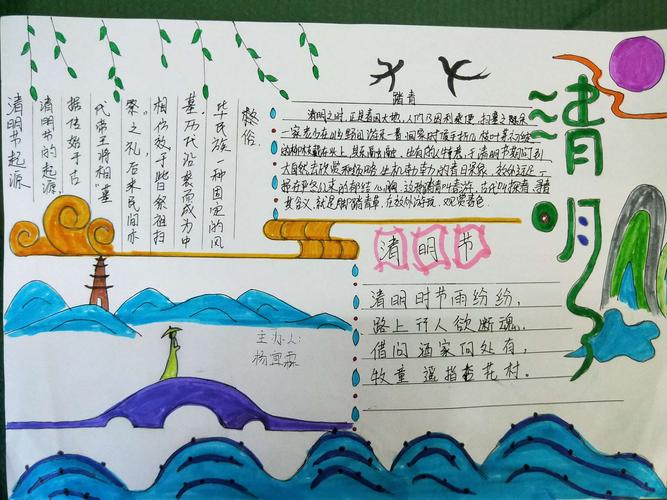 清明
清明节起源
清明节的起源,
据传始于古
代帝王将相"墓
祭"之礼后来民间亦
相仿效于此日祭祖扫
墓.历代沿袭而成为中
华民族一种固定的风
俗.
踏青
清明之时,正是春回大地,人们乃因利乘便,扫墓之余亦
一家老少在山乡野间游乐一番,回家时顺手折几枝叶芽初绽
的柳枝戴在头上,其乐融融.也有的人特意于清明节期间到
大自然去欣赏和领略生机勃勃的春日景象,郊外远足一
严冬以来的郁结心胸,这种踏青也叫春游,古代叫探春、寻春
其含义,就是脚踏青草,在郊外游玩,观赏春色
清明节
清明时节雨纷纷,
路上行人欲断魂.
借问酒家何处有,
牧童遥指杏花村.
主办人:
杨